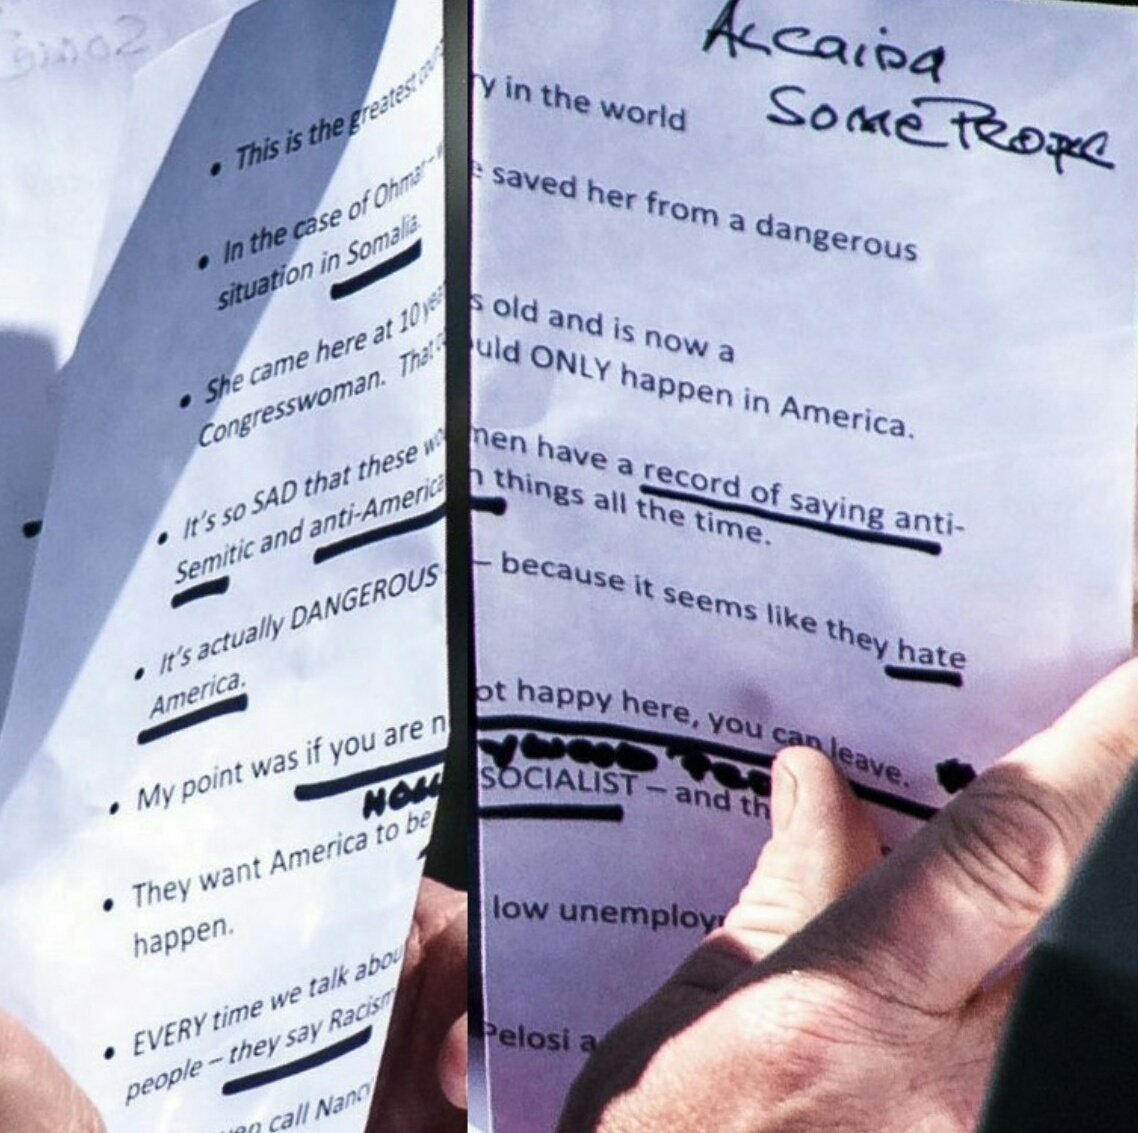 • This is the greatest coun
• In the case of Ohmar – w
situation in Somalia.
• She came here at 10 yea
Congresswoman. That c
• It's so SAD that these wo
Semitic and anti-America
• It's actually DANGEROUS
America.
• My point was if you are n
• They want America to be
happen.
• EVERY time we talk abou
people – they say Racism
ven call Nancy
Alcaida
Some People
ry in the world
e saved her from a dangerous
s old and is now a
uld ONLY happen in America.
men have a record of saying anti-
n things all the time.
– because it seems like they hate
ot happy here, you can leave.
SOCIALIST – and th
low unemploy
Pelosi a